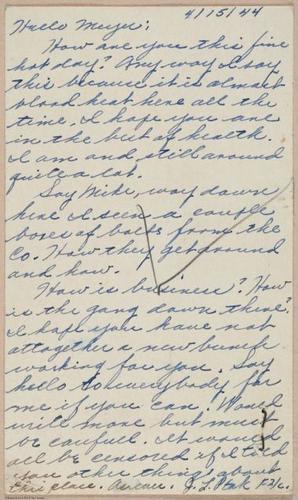 4/15/44
Hello Meyer:
How are you this fine
hot day? Any way I say
this because it is almost
blood heat here all the
time. I hope you are
in the best of health.
I am and still around
quite a lot.
Say Mike, way down
here I seen a couple
boxes of bolts from the
Co. How they get around
and how.
How is business? How
is the gang down there?
I hope you have not
altogether a new bunch
working for you. Say
hello to everybody for
me if you can. Would
write more but must
be carefull. It would
all be censored if I told
you other things about
this place. J. L. F2/c.